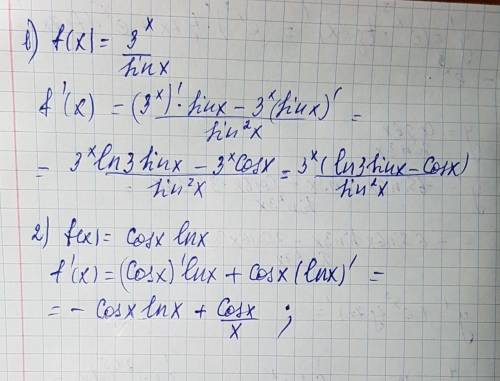 в) f(x) = 3^x / sinx
f'(x) = ((3^x)' · sinx - 3^x (sinx)') / sin²x =
= (3^x ln3 sinx - 3^x cosx) / sin²x = 3^x (ln3 sinx - cosx) / sin²x
2) f(x) = cosx lnx
f'(x) = (cosx)' lnx + cosx (lnx)' =
= - cosx lnx + cosx / x ;